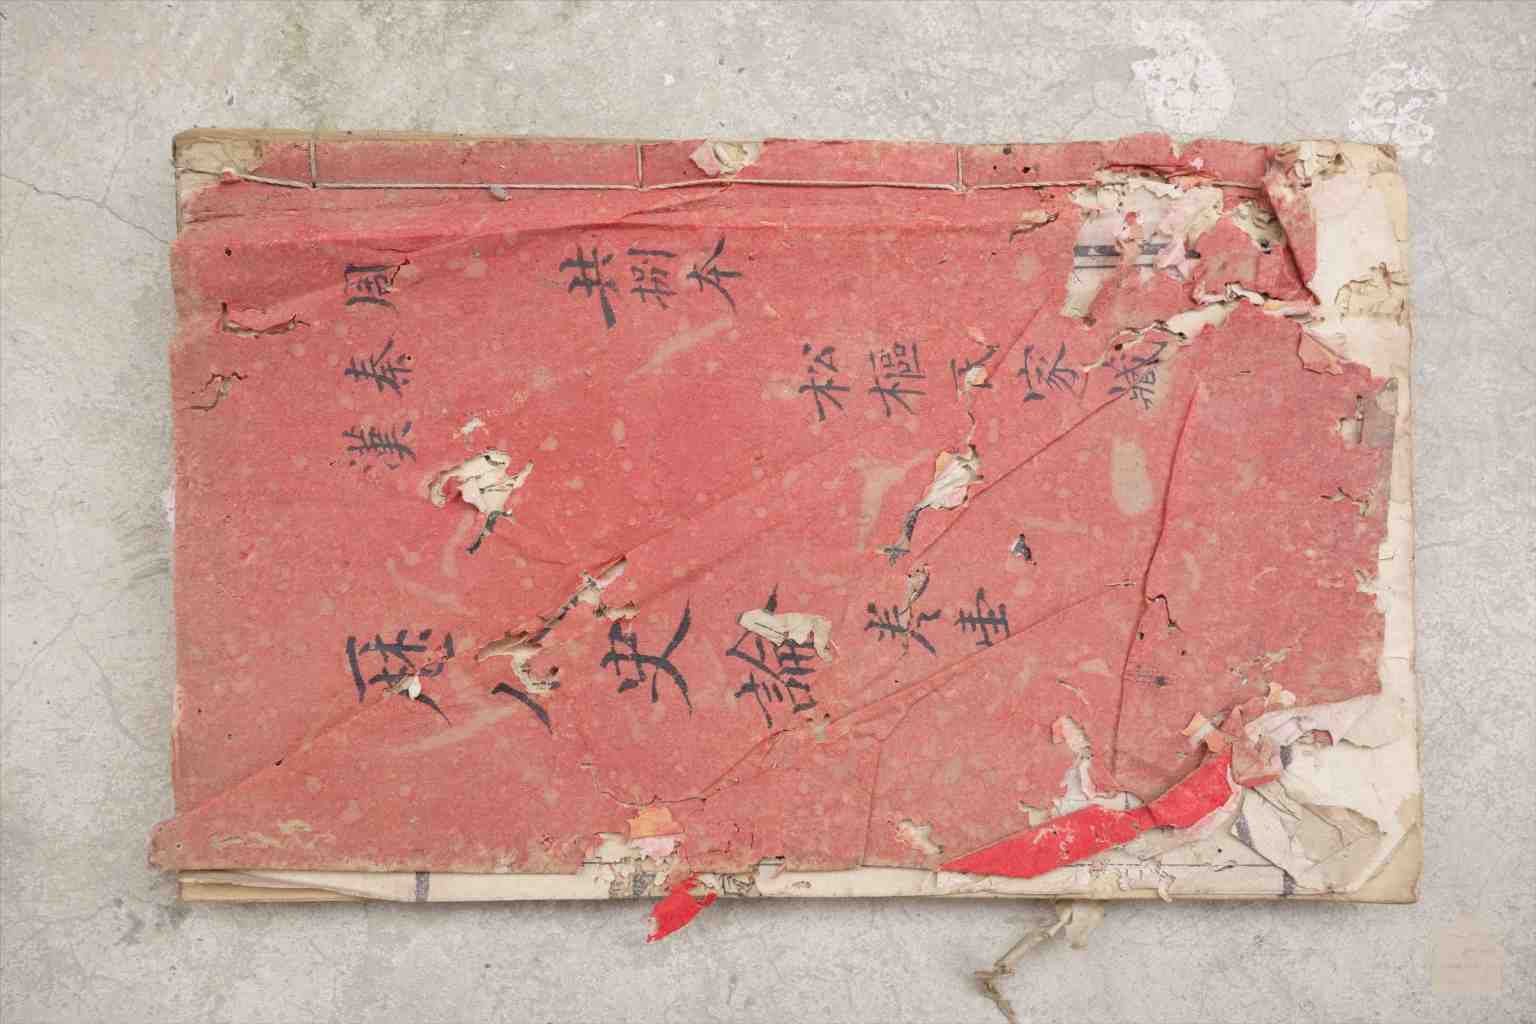 周秦漢
共捌本
松樞氏家藏
歷代史論卷壹